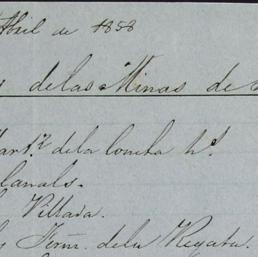 Abril de 1858
de las Minas de
Mart.z de la Concha h.s
Canals.
Villada.
Ferm. de la Regata.